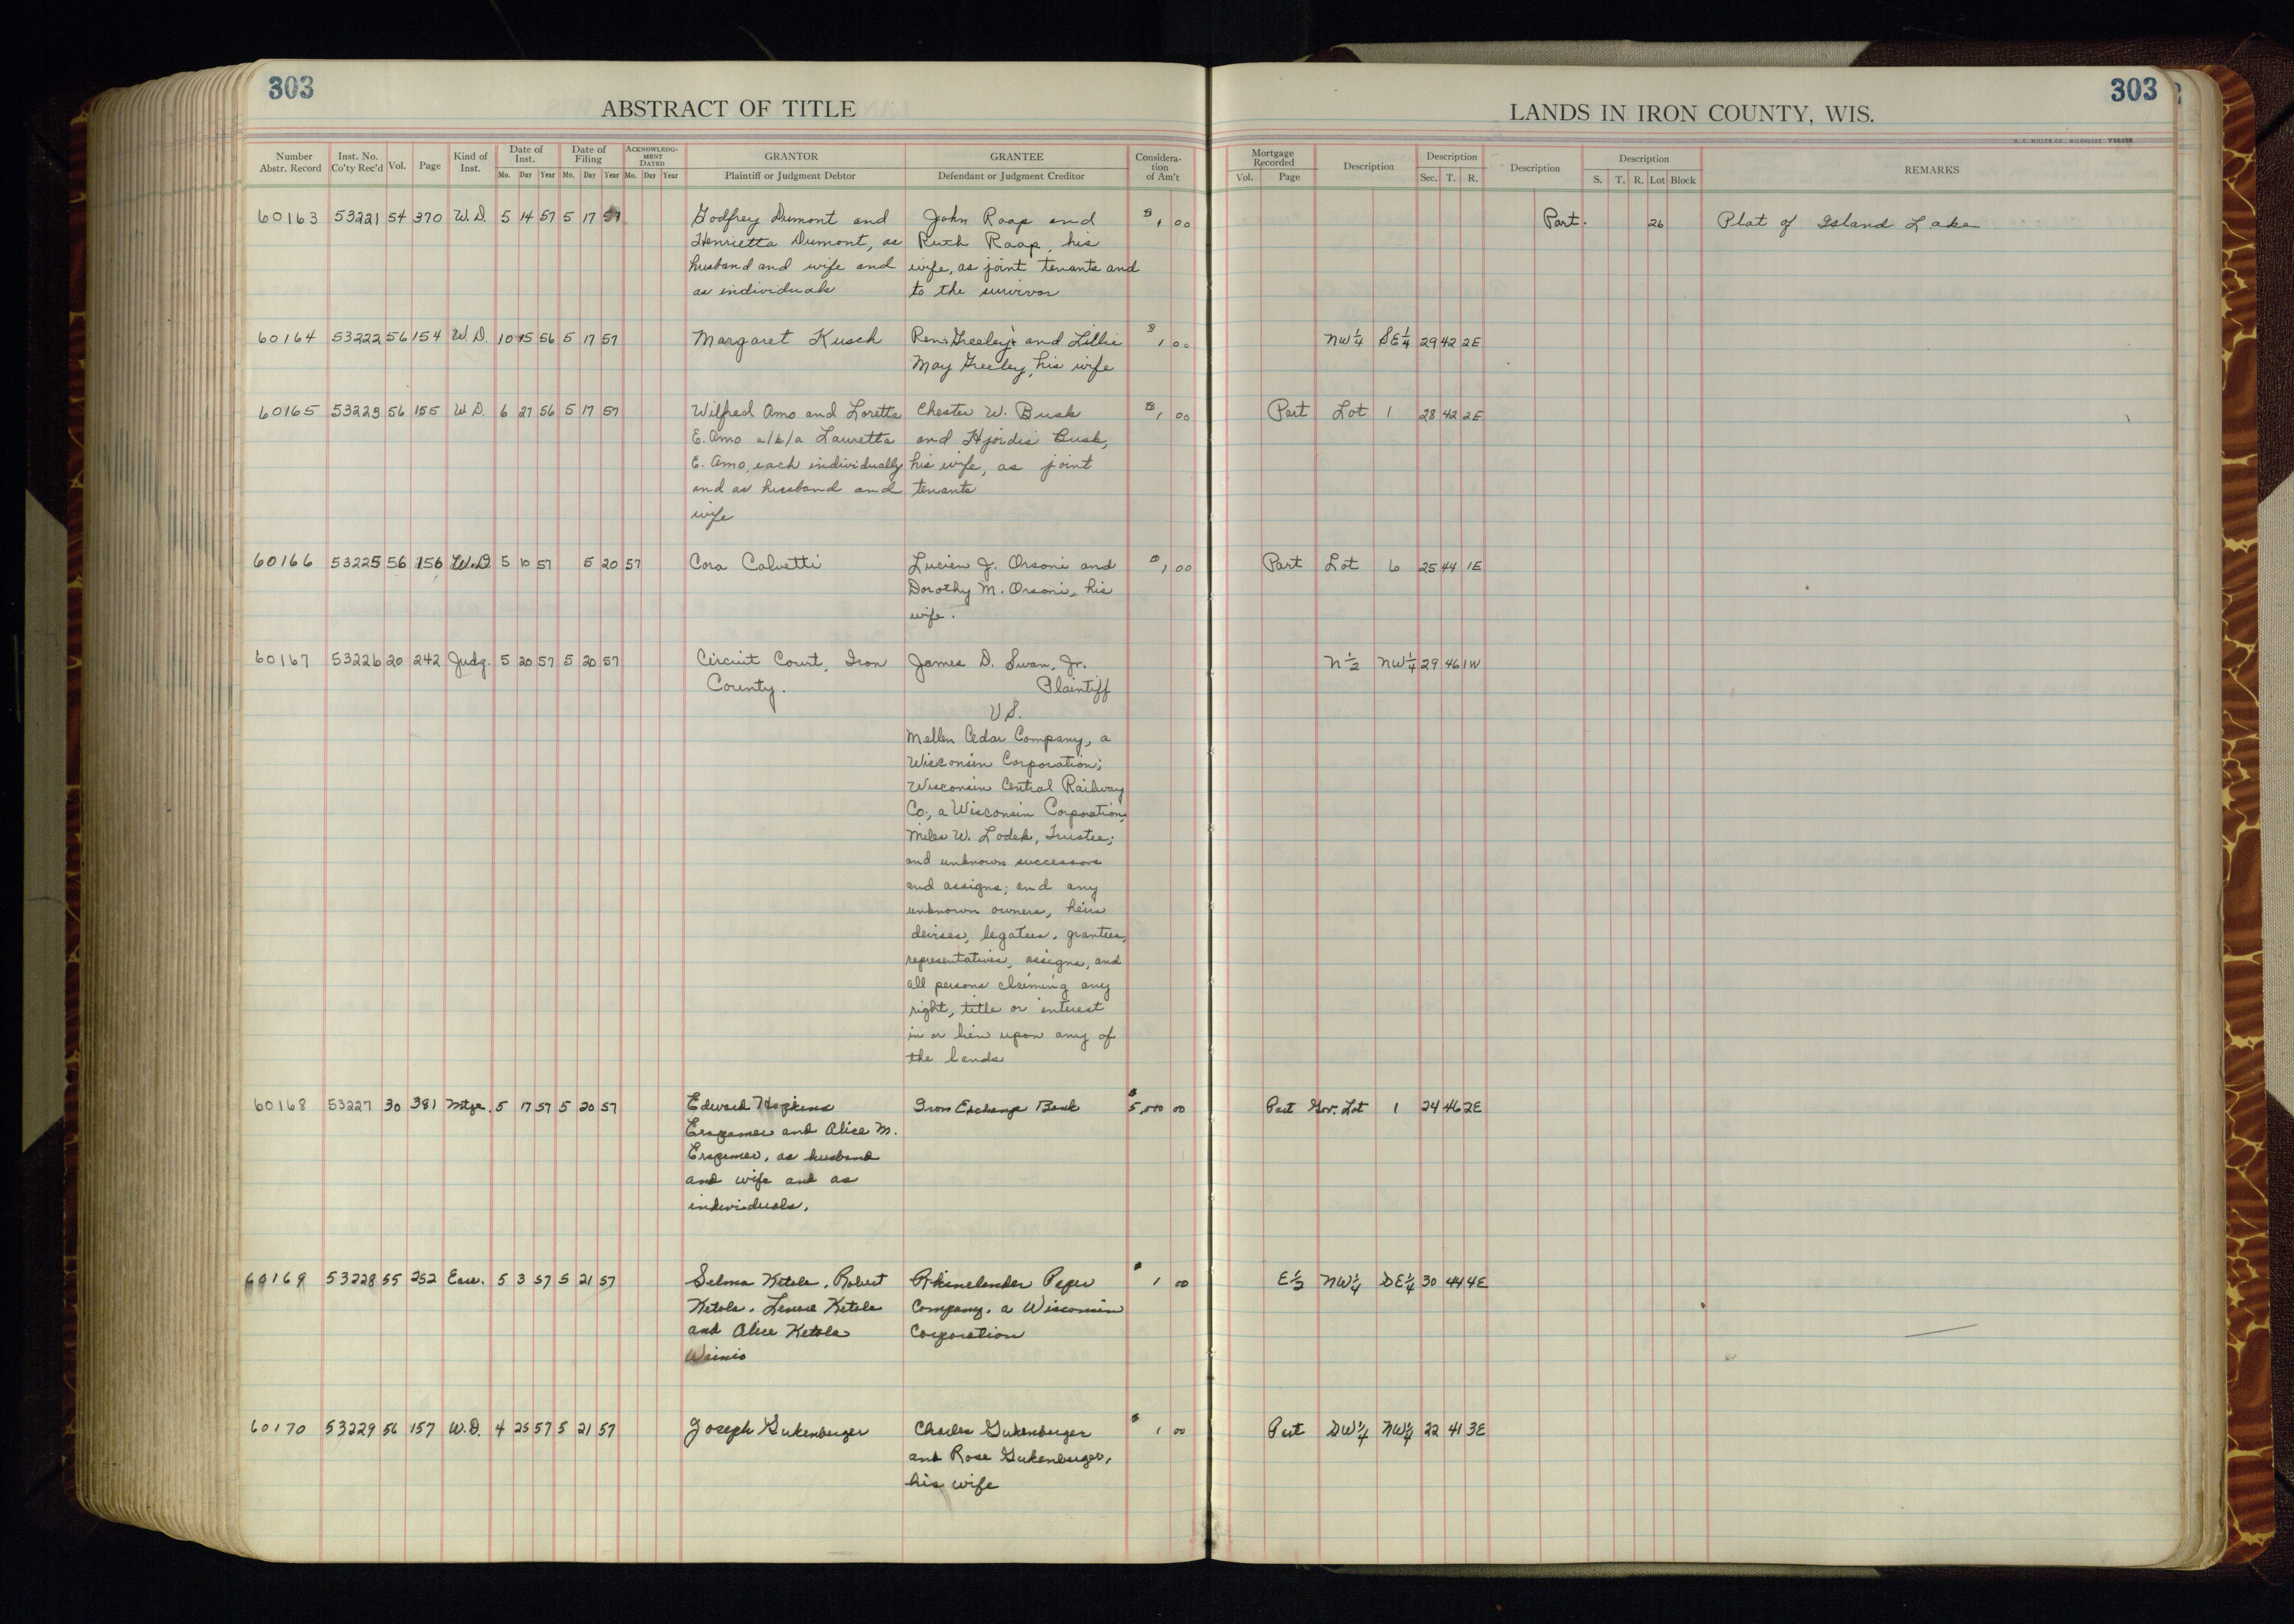 303
303
ABSTRACT OF TITLE
LANDS IN IRON COUNTY, WIS.
H. C. MILLER CO., MILWAUKEE
Number Abstr. Record | Inst. No. Co'ty Rec'd | Vol. | Page | Kind of Inst. | Date of Inst. Mo. Day Year | Date of Filing Mo. Day Year | ACKNOWLEDGMENT DATED Mo. Day Year | GRANTOR Plaintiff or Judgment Debtor | GRANTEE Defendant or Judgment Creditor | Consideration of Am't | Mortgage Recorded Vol. Page | Description | Description Sec. T. R. | Description | Description S. T. R. Lot Block | REMARKS
60163 53221 54 370 W.D. 5 14 57 5 17 57 Godfrey Dumont and John Raap and $1 00 Part. 26 Plat of Island Lake
Henrietta Dumont, as Ruth Raap, his
husband and wife and wife, as joint tenants and
as individuals to the survivor
60164 53222 56 154 W.D. 10 15 56 5 17 57 Margaret Kusch Greeley and Lillie $1 00 NW 1/4 SE 1/4 29 42 2E
May Greeley, his wife
60165 53223 56 155 W.D. 6 27 56 5 17 57 Wilfred Amo and Loretta Chester W. Busk $1 00 Part Lot 1 28 42 2E
E. Amo a/k/a Lauretta and Hjordis Busk,
E. Amo, each individually his wife, as joint
and as husband and tenants
wife
60166 53225 56 156 W.D. 5 10 57 5 20 57 Cora Calvetti Lucien J. Orsoni and $1 00 Part Lot 6 25 44 1E
Dorothy M. Orsoni, his
wife.
60167 53226 20 242 Judg. 5 20 57 5 20 57 Circuit Court, Iron James D. Swan, Jr. N 1/2 NW 1/4 29 46 1W
County. Plaintiff
VS.
Mellen Cedar Company, a
Wisconsin Corporation;
Wisconsin Central Railway
Co., a Wisconsin Corporation;
Miles W. Trustee;
and unknown successors
and assigns; and any
unknown owners, heirs
devises, legatees, grantees,
representatives, assigns, and
all persons claiming any
right, title or interest
in or lien upon any of
the lands
60168 53227 30 381 Mtge. 5 17 57 5 20 57 Edward Hopkins Iron Exchange Bank $5,000 00 Part Gov. Lot 1 24 46 2E
Erspamer and Alice M.
Erspamer, as husband
and wife and as
individuals.
60169 53228 55 252 Ease. 5 3 57 5 21 57 Selma Ketola, Robert Rhinelander Paper $1 00 E 1/2 NW 1/4 SE 1/4 30 44 4E
Ketola, Ketola Company, a Wisconsin
and Alice Ketola Corporation
Wainio
60170 53229 56 157 W.D. 4 25 57 5 21 57 Joseph Gukenberger Charles Gukenberger $1 00 Part SW 1/4 NW 1/4 22 41 3E
and Rose Gukenberger,
his wife